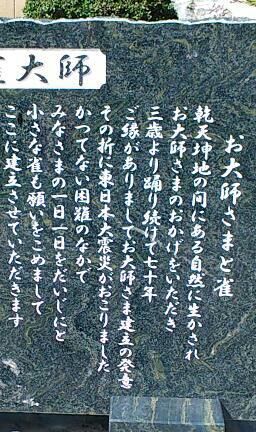 大師
お大師さまと雀
乾天坤地の間にある自然に生かされ
お大師さまのおかげをいただき
三歳より踊り続けて七十年
ご縁がありましてお大師さま建立の発意
その折に東日本大震災がおこりました
かつてない困難のなかで
みなさまの一日一日をだいじにと
小さな雀も願いをこめまして
ここに建立させていただきます